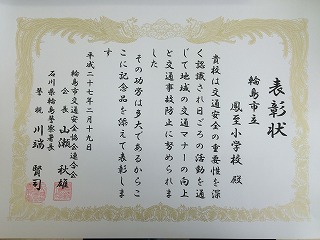 表彰状
輪島市立
鳳至小学校 殿
貴校は交通安全の重要性を深
く認識され日ごろの活動を通
じて地域の交通マナーの向上
と交通事故防止に努められま
した
その功労は多大であるからこ
こに記念品を添えて表彰しま
す
平成二十七年二月十九日
輪島市交通安全協会連合会
会長 山瀬秋雄
石川県輪島警察署長
警視 川端賢司